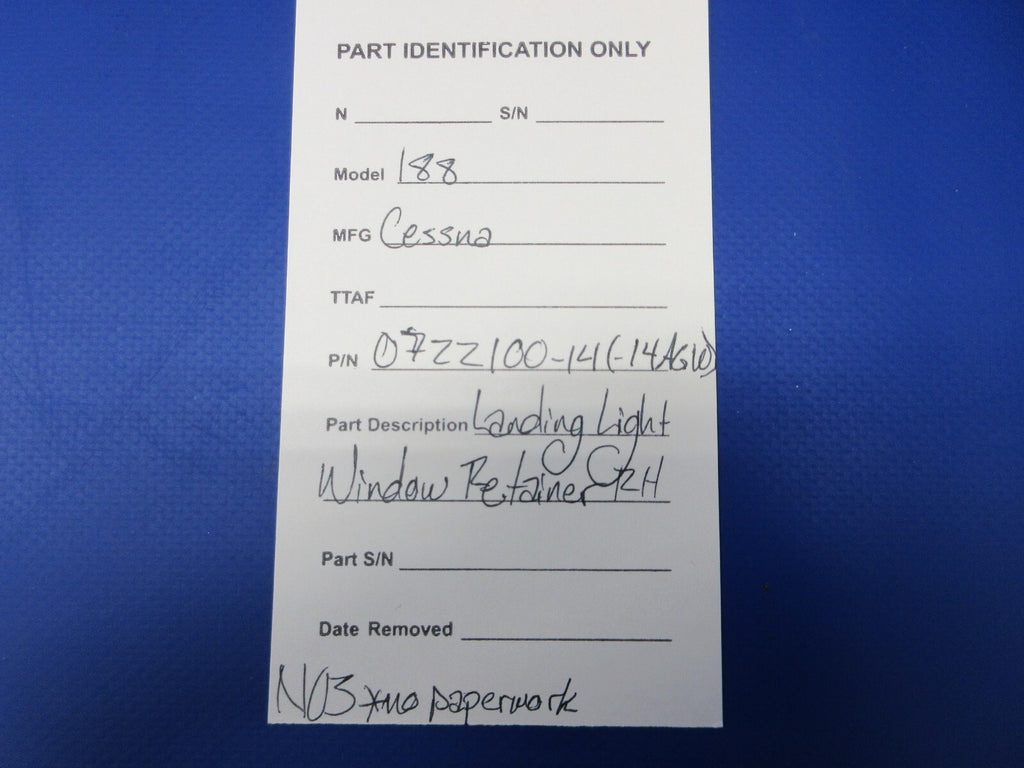 PART IDENTIFICATION ONLY
N S/N
Model 188
MFG Cessna
TTAF
P/N 0722100-14 (-14AGW)
Part Description Landing Light
Window Retainer RH
Part S/N
Date Removed
NO3 *no paperwork